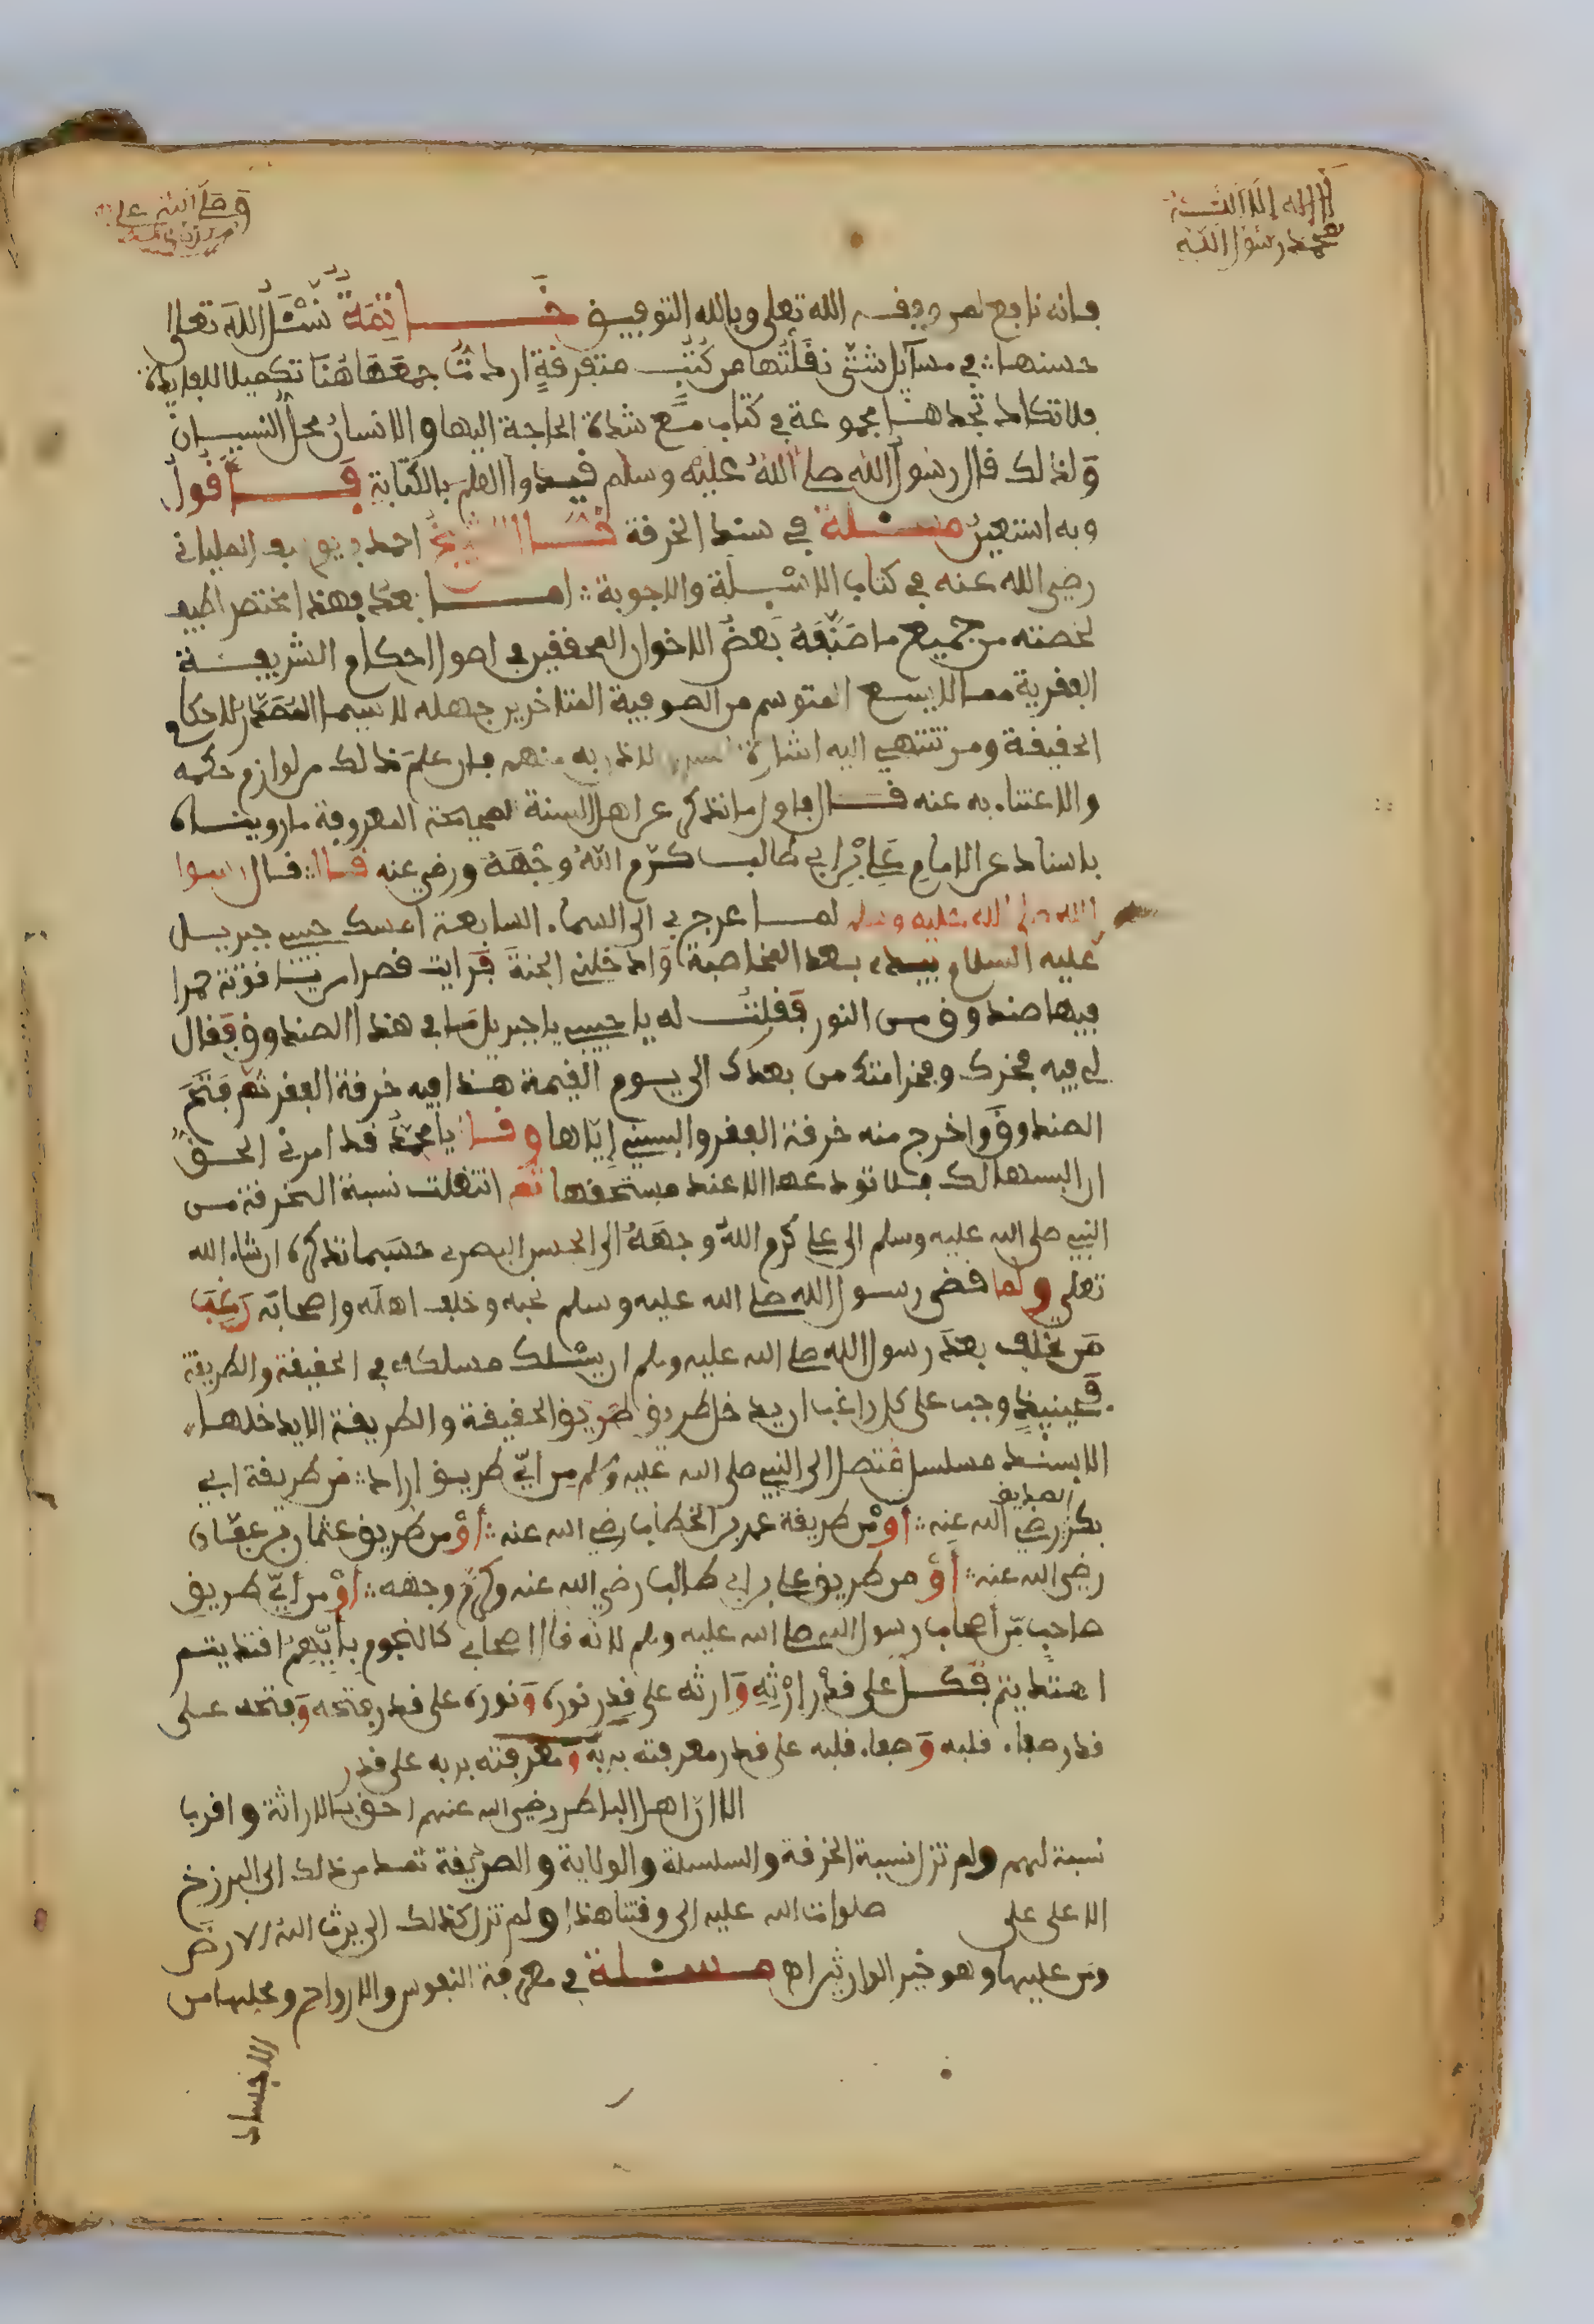 لا إله إلا الله
محمد رسول الله
وصلى الله على
فإنه نافع لمن وفقه الله تعلى وبالله التوفيق خاتمة نسئل الله تعلى
حسنها في مسآئل شتى نقلتها من كتب متفرقة اردت جمعها هنا تكميلا للفايدة
فلا تكاد تجدها مجموعة في كتاب مع شدة الحاجة اليها والانسان محل النسيان
ولذلك قال رسول الله صلى الله عليه وسلم قيدوا العلم بالكتابة فأقول
وبه استعين مسئلة في سند الخرقة قال الشيخ احمد بن يوسف الملياني
رضي الله عنه في كتاب الاسئلة والاجوبة اما بعد فهذا مختصر لطيف
لخصته من جميع ما صنفه بعض الاخوان المحققين في اصول احكام الشريفة
الفقرية مما لا يسع المتوسم من الصوفية المتاخرين جهله لا سيما المتصدر لاحكام
الحقيقة ومن تنتهي اليه اشارة منهم فان علم ذلك من لوازم حكمه
والاعتناء به عنه قال فاول ما نذكر عن اهل السنة الصحيحة المعروفة ما رويناه
باسناد عن الامام علي بن ابي طالب كرم الله وجهه ورضي عنه قال قال رسول
الله صلى الله عليه وسلم لما عرج بي الى السماء السابعة امسك حبيبي جبريل
عليه السلام بيدي بعد المخاطبة وادخلني الجنة فرايت قصرا من ياقوتة حمرا
فيها صندوق من النور فقلت له يا حبيبي يا جبريل ما في هذا الصندوق فقال
لي فيه فخرك وفخر امتك من بعدك الى يوم القيمة هذا فيه خرقة الفقر ثم فتح
الصندوق واخرج منه خرقة الفقر والبسني إياها وقال يا محمد قد امرني الحق
ان البسها لك فلا تودعها الا عند مستحقها ثم انتقلت نسبة الخرقة من
النبي صلى الله عليه وسلم الى علي كرم الله وجهه الى الحسن البصري حسبما نذكره ان شاء الله
تعلى ولما قضى رسول الله صلى الله عليه وسلم نحبه وخلف اهله واصحابه رغب
من تخلف بعد رسول الله صلى الله عليه وسلم ان يسلك مسلكه في الحقيقة والطريقة
فحينيذ وجب على كل راغب ان يدخل طريق الحقيقة والطريقة الا يدخلها
الا بسند مسلسل متصل الى النبي صلى الله عليه وسلم من اي طريق اراد من طريقة ابي
بكر الصديق رضي الله عنه أو من طريقة عمر بن الخطاب رضي الله عنه أو من طريق عثمان بن عفان
رضي الله عنه أو من طريق علي بن ابي طالب رضي الله عنه وكرم وجهه أو من أي طريق
صاحب من أصحاب رسول الله صلى الله عليه وسلم لانه قال اصحابي كالنجوم بأيهم اقتديتم
اهتديتم فكل على قدر ارثه وارثه على قدر نوره ونوره على قدر فتحه وفتحه على
قدر صفاء قلبه وصفاء قلبه على قدر معرفته بربه ومعرفته بربه على قدر
الا ان اهل الباطن رضي الله عنهم احق بالاراثة واقربا
نسبة لهم ولم تزل نسبة الخرقة والسلسلة والولاية والطريقة تمد من ذلك الى البرزخ
الاعلى على صلوات الله عليه الى وقتنا هذا ولم تزل كذلك الى يرث الله الارض
ومن عليها وهو خير الوارثين اه مسئلة في معرفة النفوس والارواح ومحلها من
الاجساد